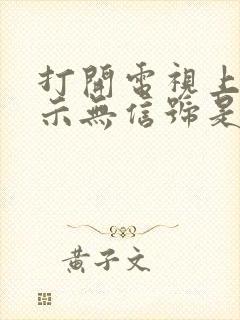 打開電視上
示無信號是
黃子文